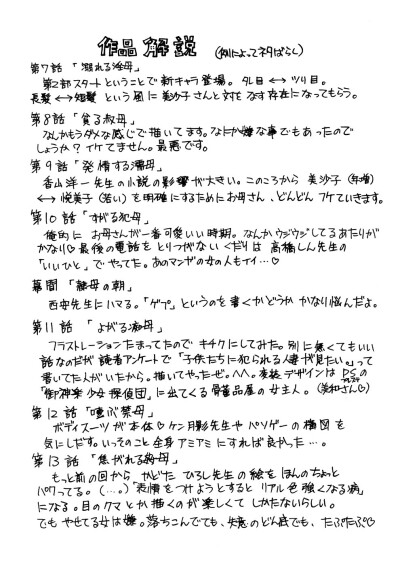 作品解説 (例によってネタばらし)
第7話「溺れる淫母」
第2部スタートということで新キャラ登場。タレ目←→ツリ目。
長髪←→短髪という風に美沙子さんと対をなす存在になってもらう。
第8話「貪る叔母」
なんかもうダメな感じで描いてます。なにか嫌な事でもあったので
しょうか?イケてません。最悪です。
第9話「発情する濡母」
香山洋一先生の小説の影響が大きい。このころから美沙子(年増)
←→悦美子(若い)を明確にするためにお母さん、どんどんフケていきます。
第10話「すがる犯母」
俺的にお母さんが一番可愛いい時期。なんかウジウジしてるあたりが
かなり♡最後の電話をとりつがないくだりは高橋しん先生の
「いいひと」でやってた。あのマンガの女の人もイイ…♡
幕間「隷母の朝」
西安先生にハマる。「ゲプ」というのを書くかどうかかなり悩んだよ。
第11話「よがる痴母」
フラストレーションたまってたのでキチクにしてみた。別に無くてもいい
話なのだが読者アンケートで「子供たちに犯られる人妻が見たい。」って
書いてた人がいたから。描いてやったぜ。^^。衣装デザインはPSの
「御神楽少女探偵団」に出てくる骨董品屋の女主人。(美和さん♡)
第12話「咽ぶ禁母」
ボディスーツが本体♡ケン月影先生やパソゲーの構図を
気にしだす。いっそのこと全身アミアミにすれば良かった…。
第13話「焦がれる
もっと前の回からかどたひろし先生の絵をほんのちょっと
パクってる。(…。)「表情をつけようとするとリアル色強くなる病」
になる。目のクマとか描くのが楽しくてしかたないらしい。
でもやせてる女は嫌。落ちこんでても、失意のどん底でも、たぷたぷ♡